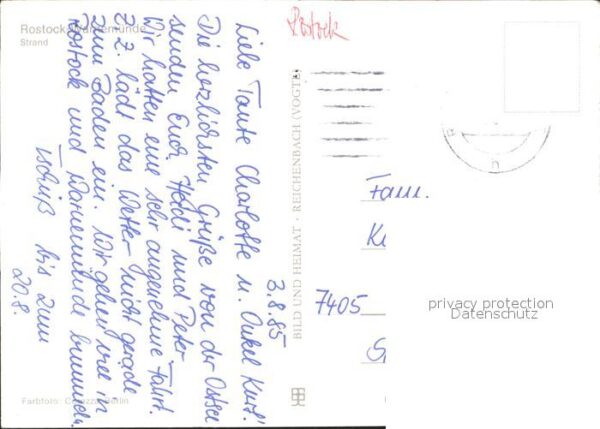 Rostock-Warnemünde
Strand
Rostock
3.8.85
Liebe Tante Charlotte u. Onkel Kurt!
Die herzlichsten Grüße von der Ostsee
senden Euch Heidi und Peter
Wir hatten eine sehr angenehme Fahrt.
Z. Z. lädt das Wetter nicht gerade
zum Baden ein. Wir gehen viel in
Rostock und Warnemünde bummeln.
Tschüß bis zum
20.8.
BILD UND HEIMAT · REICHENBACH (VOGTL
Fam.
7405
privacy protection
Datenschutz
Farbfoto: Berlin